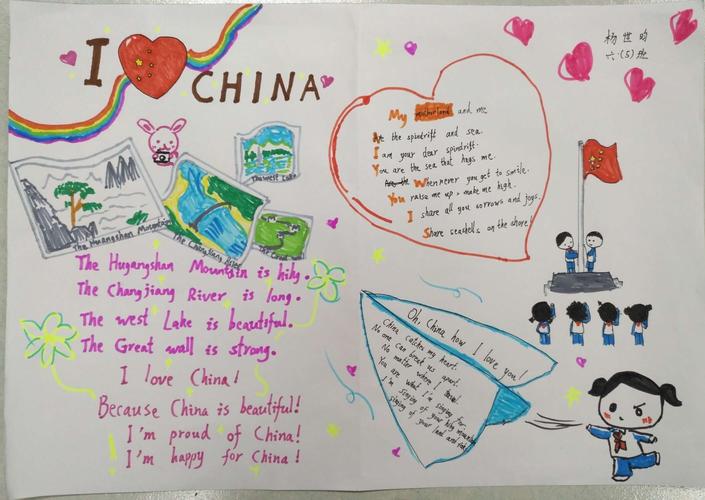 I CHINA
杨世昀
六(5)班
The Huangshan Mountain
The ChangJiang River
The West Lake
The Great
The Hugangshan Mountain is hihy.
The Changjiang River is long.
The west Lake is beautiful.
The Great wall is strong.
I love China!
Because China is beautiful!
I'm proud of China!
I'm happy for China!
My motherland and me
the spindrift and sea.
I am your dear spindrift.
You are the sea that hugs me.
Whenever you get to smile.
You raise me up, make me high.
I share all you sorrows and joys.
Share seashells on the shore!
Oh, China how I love you!
China catches my heart.
No one can break us apart.
No matter where I
You are what I'm singing for.
I'm singing of your hihy mountain
singing of your land and